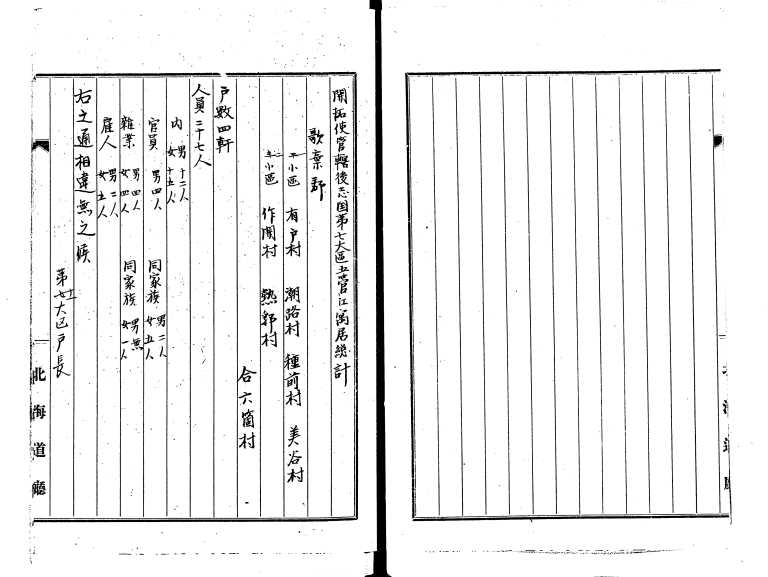 開拓使管轄後志国第七大区五管江寓居總計
歌棄郡
一小區 有戸村 潮路村 種前村 美谷村
二小區 作開村 熱郛村
合六箇村
戸数四軒
人員二十七人
内 男十二人 女十五人
官員 男四人 同家族 男二人 女五人
雜業 男四人 女四人 同家族 男無 女一人
雇人 男二人 女五人
右之通相違無之候
大区戸長
北海道廳